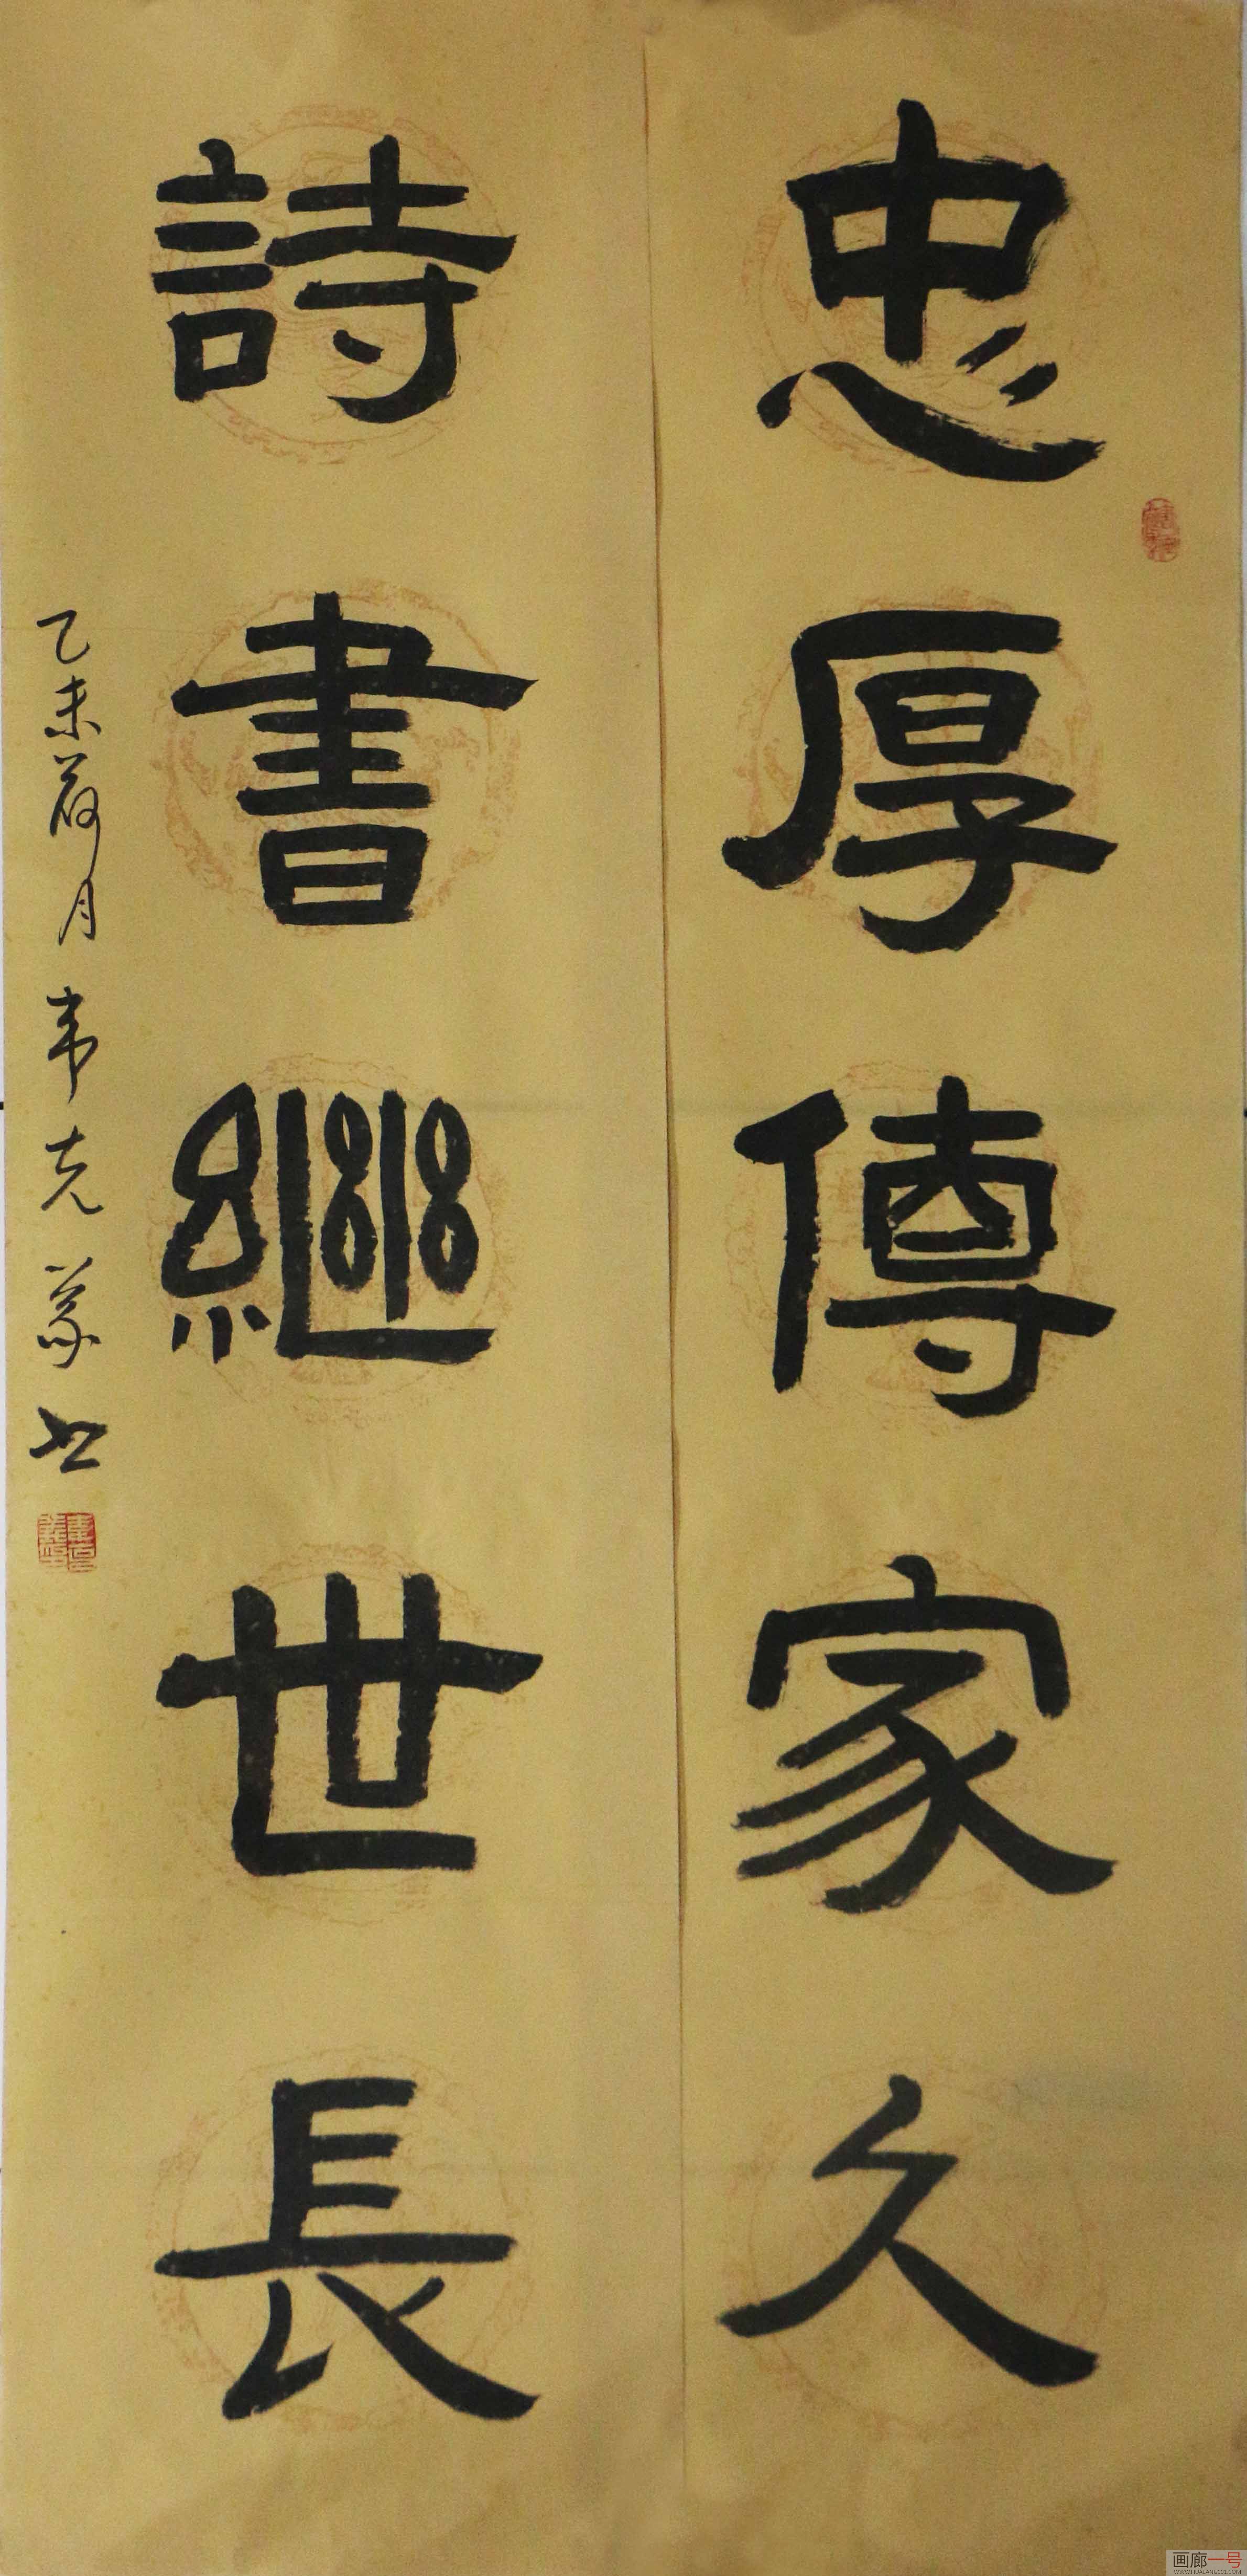 忠厚傳家久
詩書繼世長
乙未荷月韦克义书
画廊一号
WWW.HUALANG001.COM